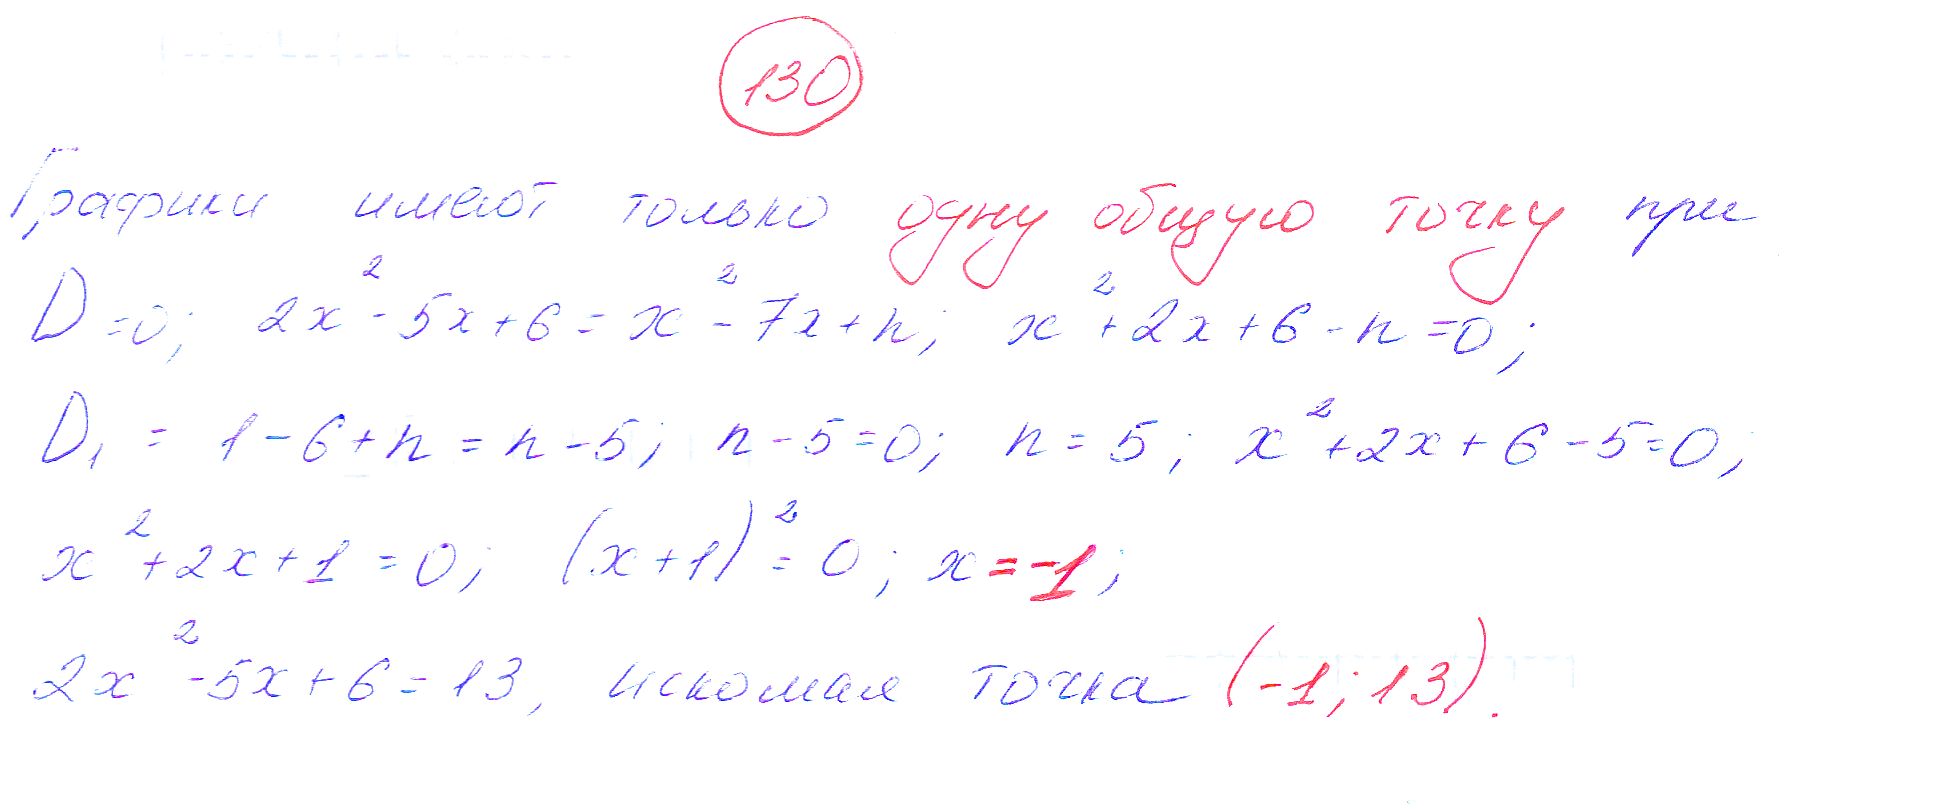 130
Графики имеют только одну общую точку при
D=0; 2x²-5x+6=x²-7x+n; x²+2x+6-n=0;
D₁ = 1-6+n=n-5; n-5=0; n=5; x²+2x+6-5=0;
x²+2x+1=0; (x+1)²=0; x=-1;
2x²-5x+6=13, искомая точка (-1;13).